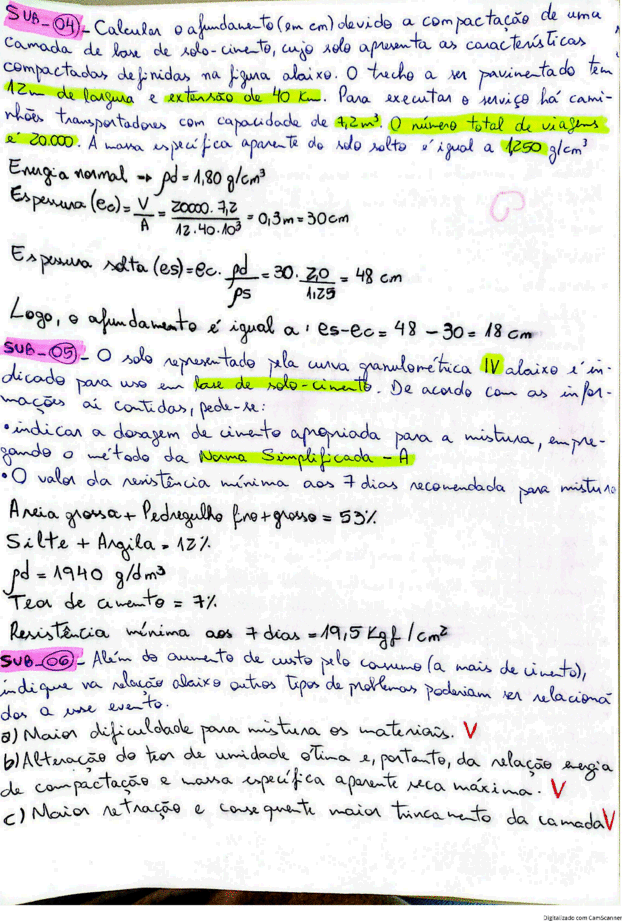 SUB-04 - Calcular o afundamento (em cm) devido a compactação de uma
camada de base de solo-cimento, cujo solo apresenta as características
compactadas definidas na figura abaixo. O trecho a ser pavimentado tem
12m de largura e extensão de 40 Km. Para executar o serviço há cami-
nhões transportadores com capacidade de 7,2 m³. O número total de viagens
é 20.000. A massa específica aparente do solo solto é igual a 1250 g/cm³
Energia normal → ρd = 1,80 g/cm³
Espessura (ec) = V/A = 20000 . 7,2 / 12 . 40 . 10³ = 0,3m = 30cm
Espessura solta (es) = ec . ρd/ρs = 30 . 2,0/1,25 = 48 cm
Logo, o afundamento é igual a : es - ec = 48 - 30 = 18 cm
SUB-05 - O solo representado pela curva granulométrica IV abaixo é in-
dicado para uso em base de solo-cimento. De acordo com as infor-
mações aí contidas, pede-se:
• indicar a dosagem de cimento apropriada para a mistura, empre-
gando o método da Norma Simplificada - A
• O valor da resistência mínima aos 7 dias recomendada para mistura
Areia grossa + Pedregulho fino + grosso = 53%
Silte + Argila = 12%
ρd = 1940 g/dm³
Teor de cimento = 7%
Resistência mínima aos 7 dias = 19,5 Kgf/cm²
SUB-06 - Além do aumento de custo pelo consumo (a mais de cimento),
indique na relação abaixo outros tipos de problemas poderiam ser relaciona
dos a esse evento.
a) Maior dificuldade para mistura os materiais. V
b) Alteração do teor de umidade ótima e, portanto, da relação energia
de compactação e massa específica aparente seca máxima. V
c) Maior retração e consequente maior trincamento da camada V
Digitalizado com CamScanner